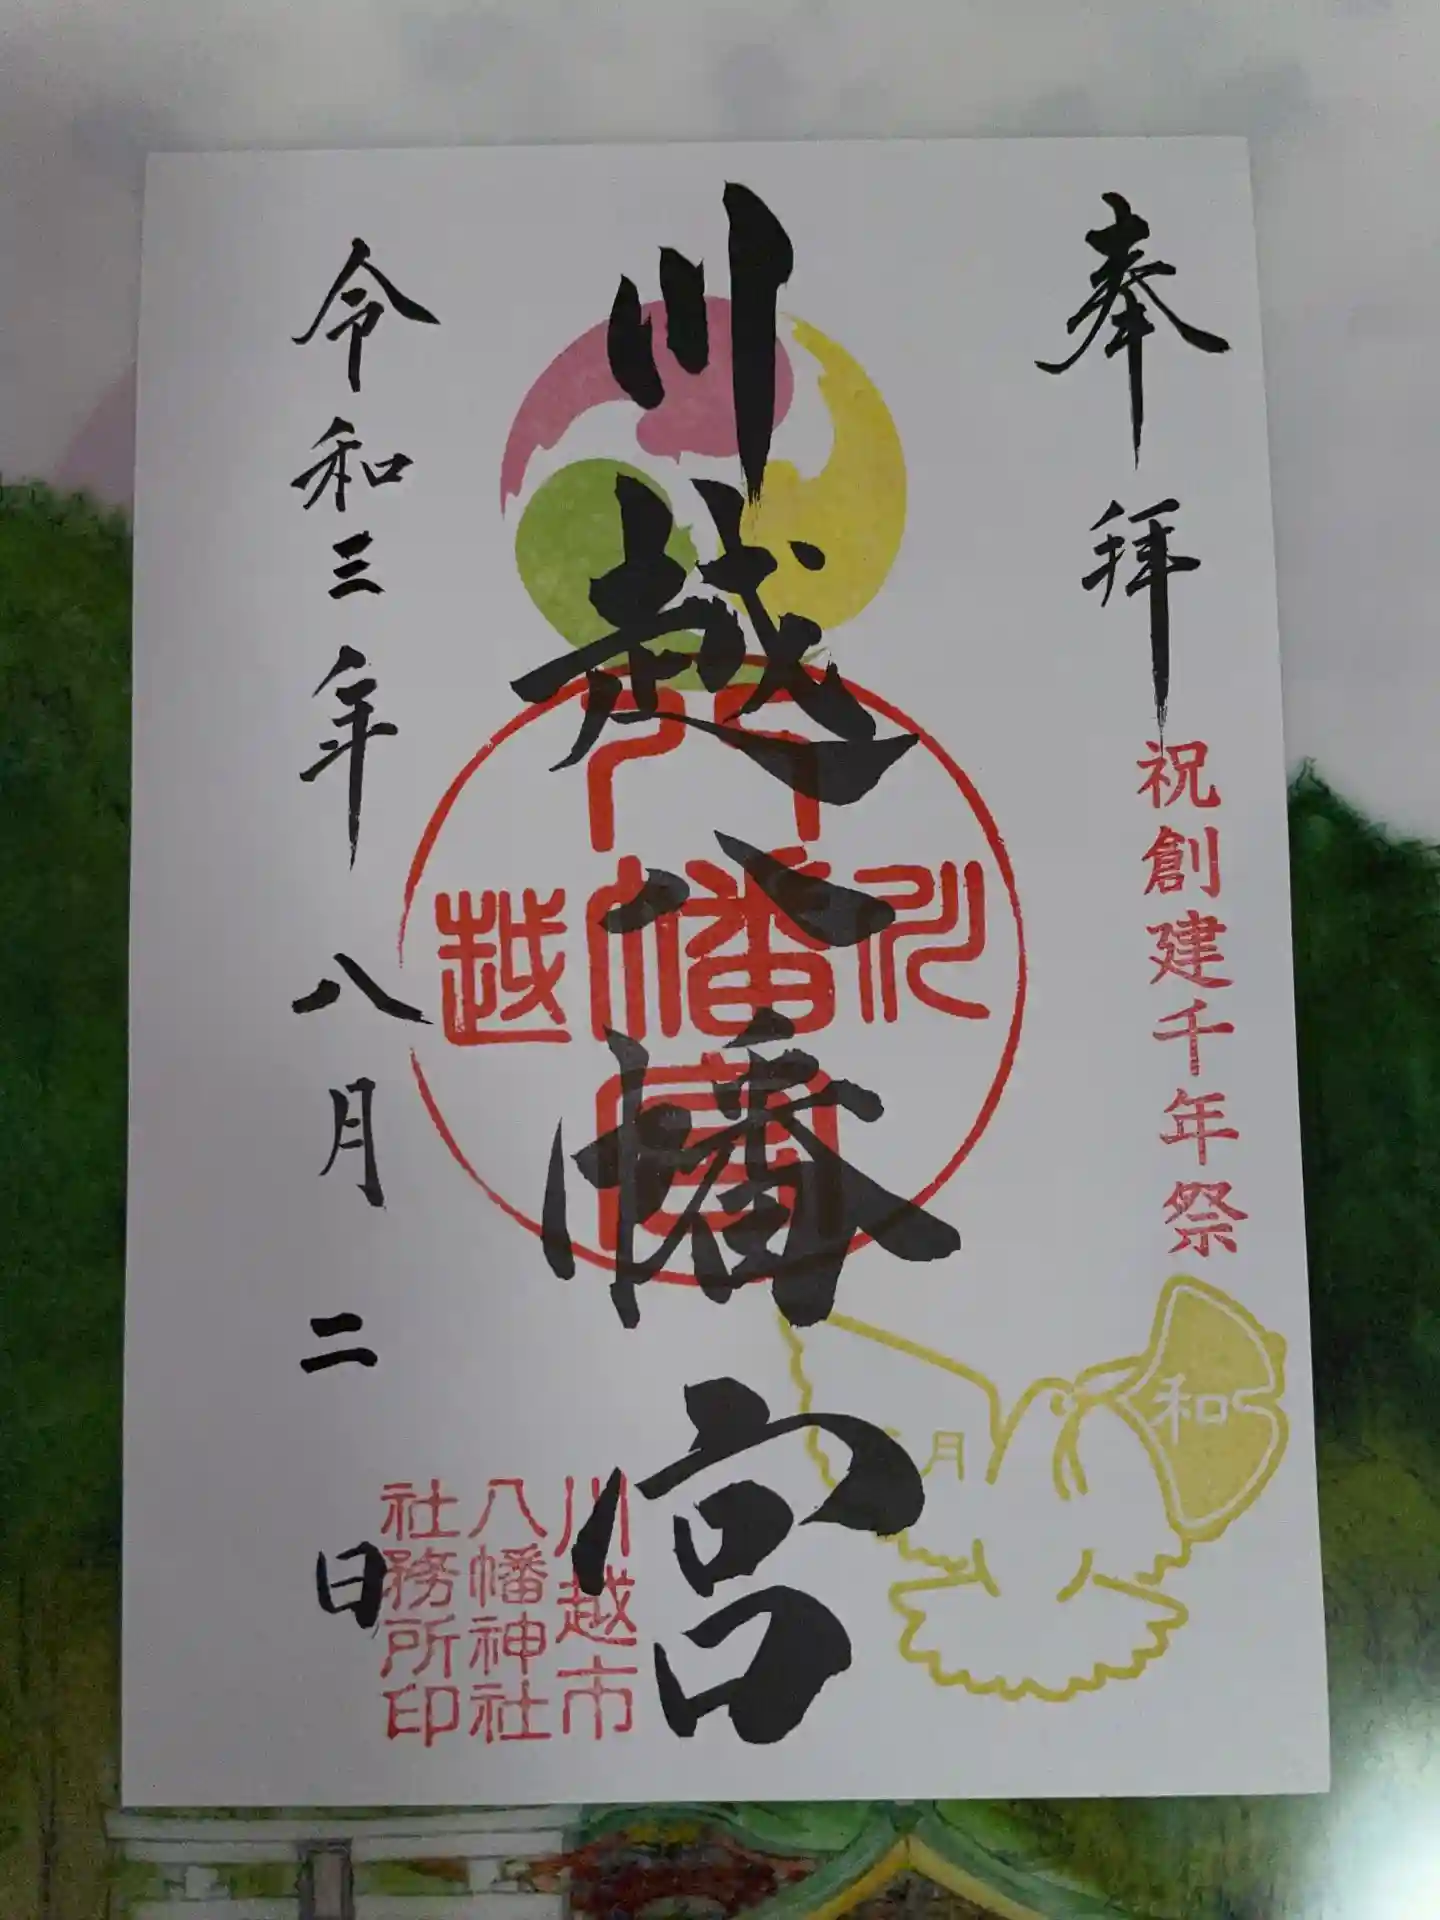 奉拝
祝創建千年祭
川越八幡宮
川越
八幡宮
和
月
令和三年八月二日
川越市
八幡神社
社務所印